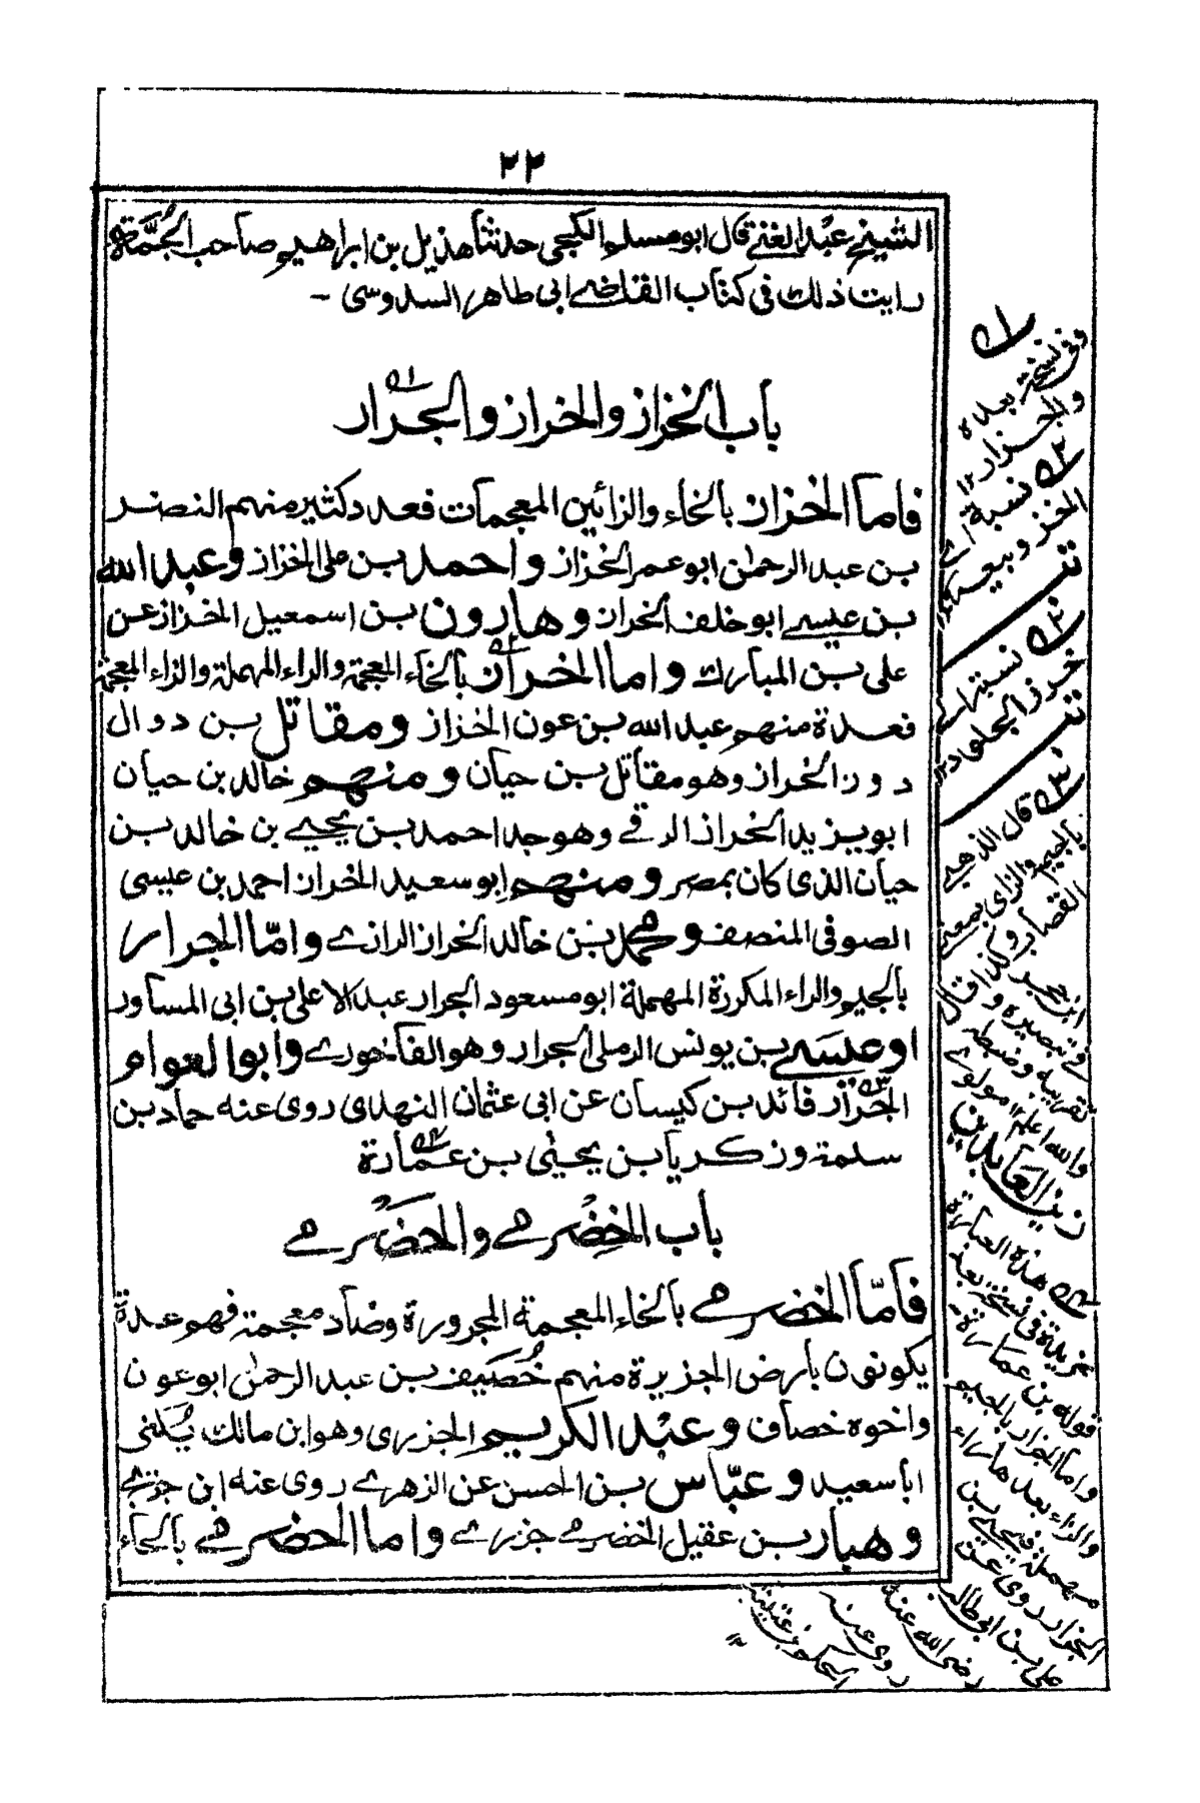 ٢٢
الشيخ عبد الغنے قال ابو مسلم الكجى حدثنا هذيل بن ابراهيم صاحب الجُمَّة
رايت ذلك فى كتاب القاضے ابى طاهر السدوسى -
باب الخزاز والخراز والجرار
فاما الخزاز بالخاء والزائين المعجمات فعدد كثير منهم النضر
بن عبد الرحمٰن ابو عمر الخزاز واحمد بن على الخزاز وعبد الله
بن عيسے ابو خلف الخزاز وهارون بن اسمعيل الخزاز عن
على بن المبارك واما الخراز بالخاء المعجمة والراء المهملة والزاء المعجمة
فعدة منهم عبد الله بن عون الخراز ومقاتل بن دوال
دوز الخراز وهو مقاتل بن حيان ومنهم خالد بن حيان
ابو يزيد الخراز الرقے وهو جد احمد بن يحيے بن خالد بن
حيان الذى كان بمصر ومنهم ابو سعيد الخراز احمد بن عيسى
الصوفى المنصف ومحمد بن خالد الخراز الرازے واما الجرار
بالجيم والراء المكررة المهملة ابو مسعود الجرار عبد الاعلى بن ابى المساور
وعيسے بن يونس الرملى الجرار وهو الفاخورے وابو العوام
الجزّار فائد بن كيسان عن ابى عثمان النهدى روى عنه حماد بن
سلمة وزكريا بن يحيٰى بن عمارة
باب الخِضْرمے والحَضْرمے
فامّا الخضرمے بالخاء المعجمة المجرورة وضاد معجمة فهم عدة
يكونون بأرض الجزيرة منهم خُصَيف بن عبد الرحمٰن ابو عون
واخوه خصاف وعبْد الكريم الجزرى وهو ابن مالك يُكنى
ابا سعيد وعبّاس بن الحسن عن الزهرے روى عنه ابن جريج
وهبار بن عقيل الخضرمے جزرے واما الحضرمے بالحاء
١
وفى نسخة بعده
والجزار ١٢
٢ نسبة الے
الخز وبيعه
٢ نسبتہ الے
خرز الجلود ١٢
٣ قال الذهبے
بالجيم والزاى بمعنى
القصاب وكذا قال
ابن حجر
فے تبصيره و
تقريبه وضبطه
والله اعلم ١٢ مولوے
زين العابدين
٤ هذه العبارة
مزيدة فى نسخة بعد
قوله بن عمارة -
واما الجرار بالجيم
والراء بعدها راء
مهملة فيحيے بن
الجزار روى عن
على بن ابى طالب
رضى الله عنه
روى عنه
الحكم بن عتيبة
١٢